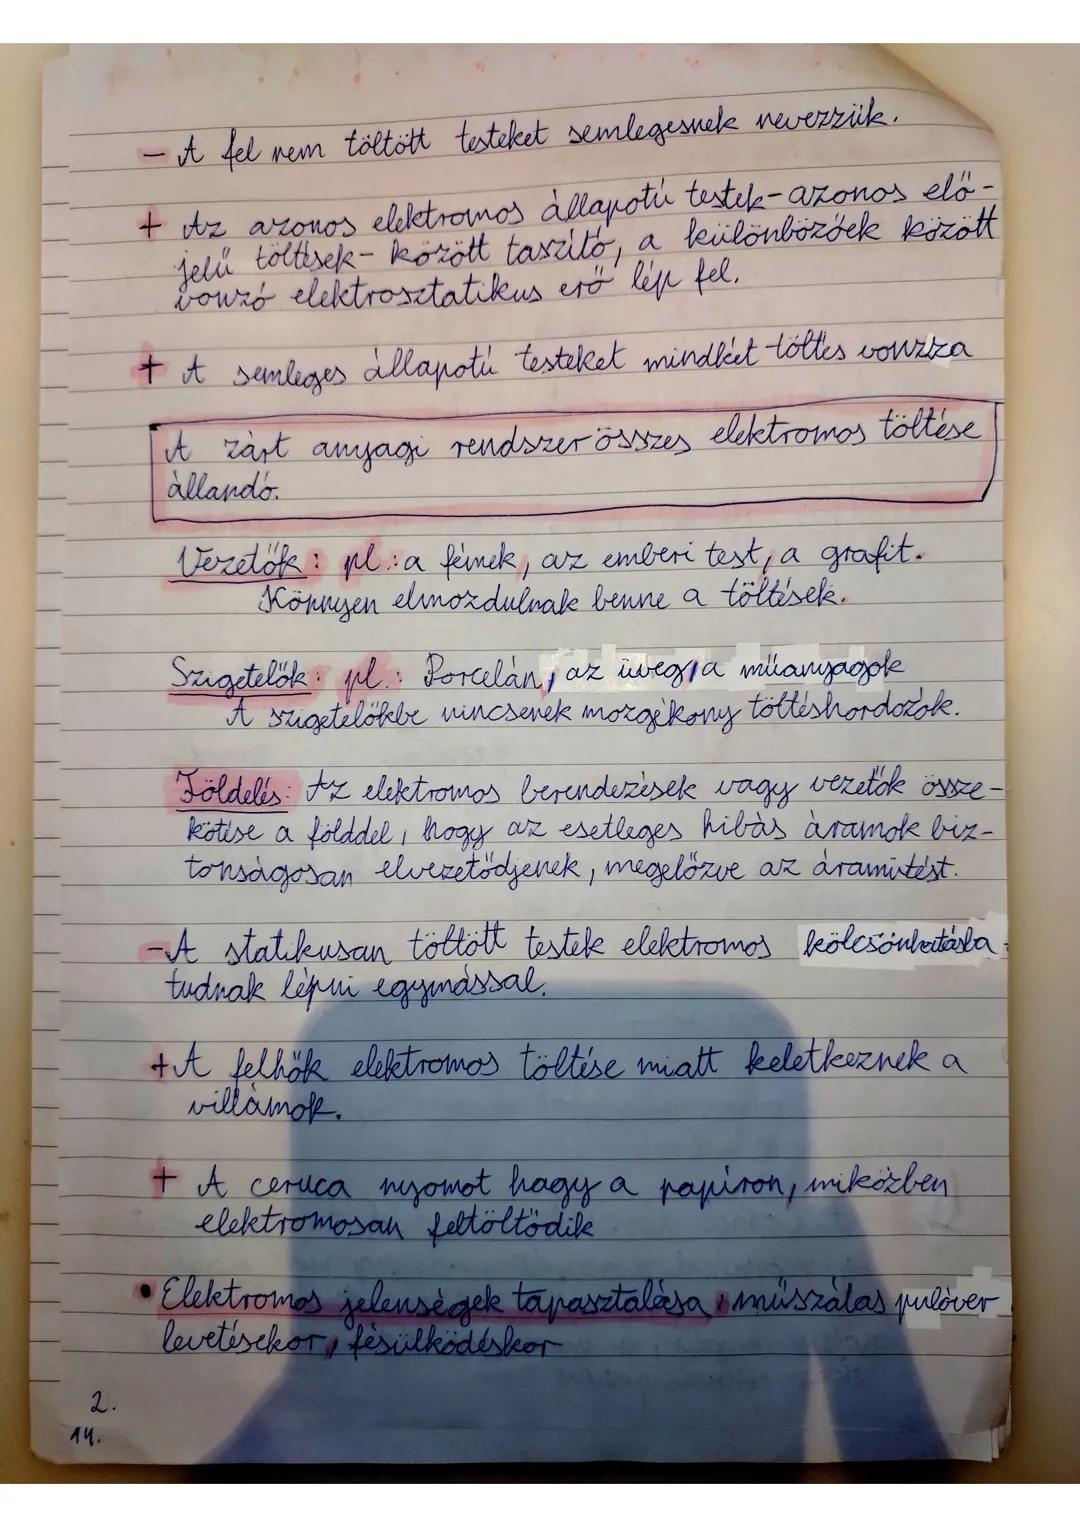 - A fel nem töltött testeket semlegesnek nevezzük.
+ Az azonos elektromos állapotú testek - azonos elő-
jelű töltések - között taszító, a különbözőek között
vonzó elektrosztatikus erő lép fel.
+ A semleges állapotú testeket mindkét töltés vonzza
A zárt anyagi rendszer összes elektromos töltése
állandó.
Vezetők: pl.: a fémek, az emberi test, a grafit.
Könnyen elmozdulnak benne a töltések.
Szigetelők: pl.: Porcelán, az üveg, a műanyagok
A szigetelőkbe nincsenek mozgékony töltéshordozók.
Földelés: Az elektromos berendezések vagy vezetők össze-
kötése a földdel, hogy az esetleges hibás áramok biz-
tonságosan elvezetődjenek, megelőzve az áramütést.
- A statikusan töltött testek elektromos kölcsönhatásba
tudnak lépni egymással.
+ A felhők elektromos töltése miatt keletkeznek a
villámok.
+ A ceruca nyomot hagy a papíron, miközben
elektromosan feltöltődik
• Elektromos jelenségek tapasztalása: műszálas pulóver
levetésekor, fésülködéskor
2.
14.